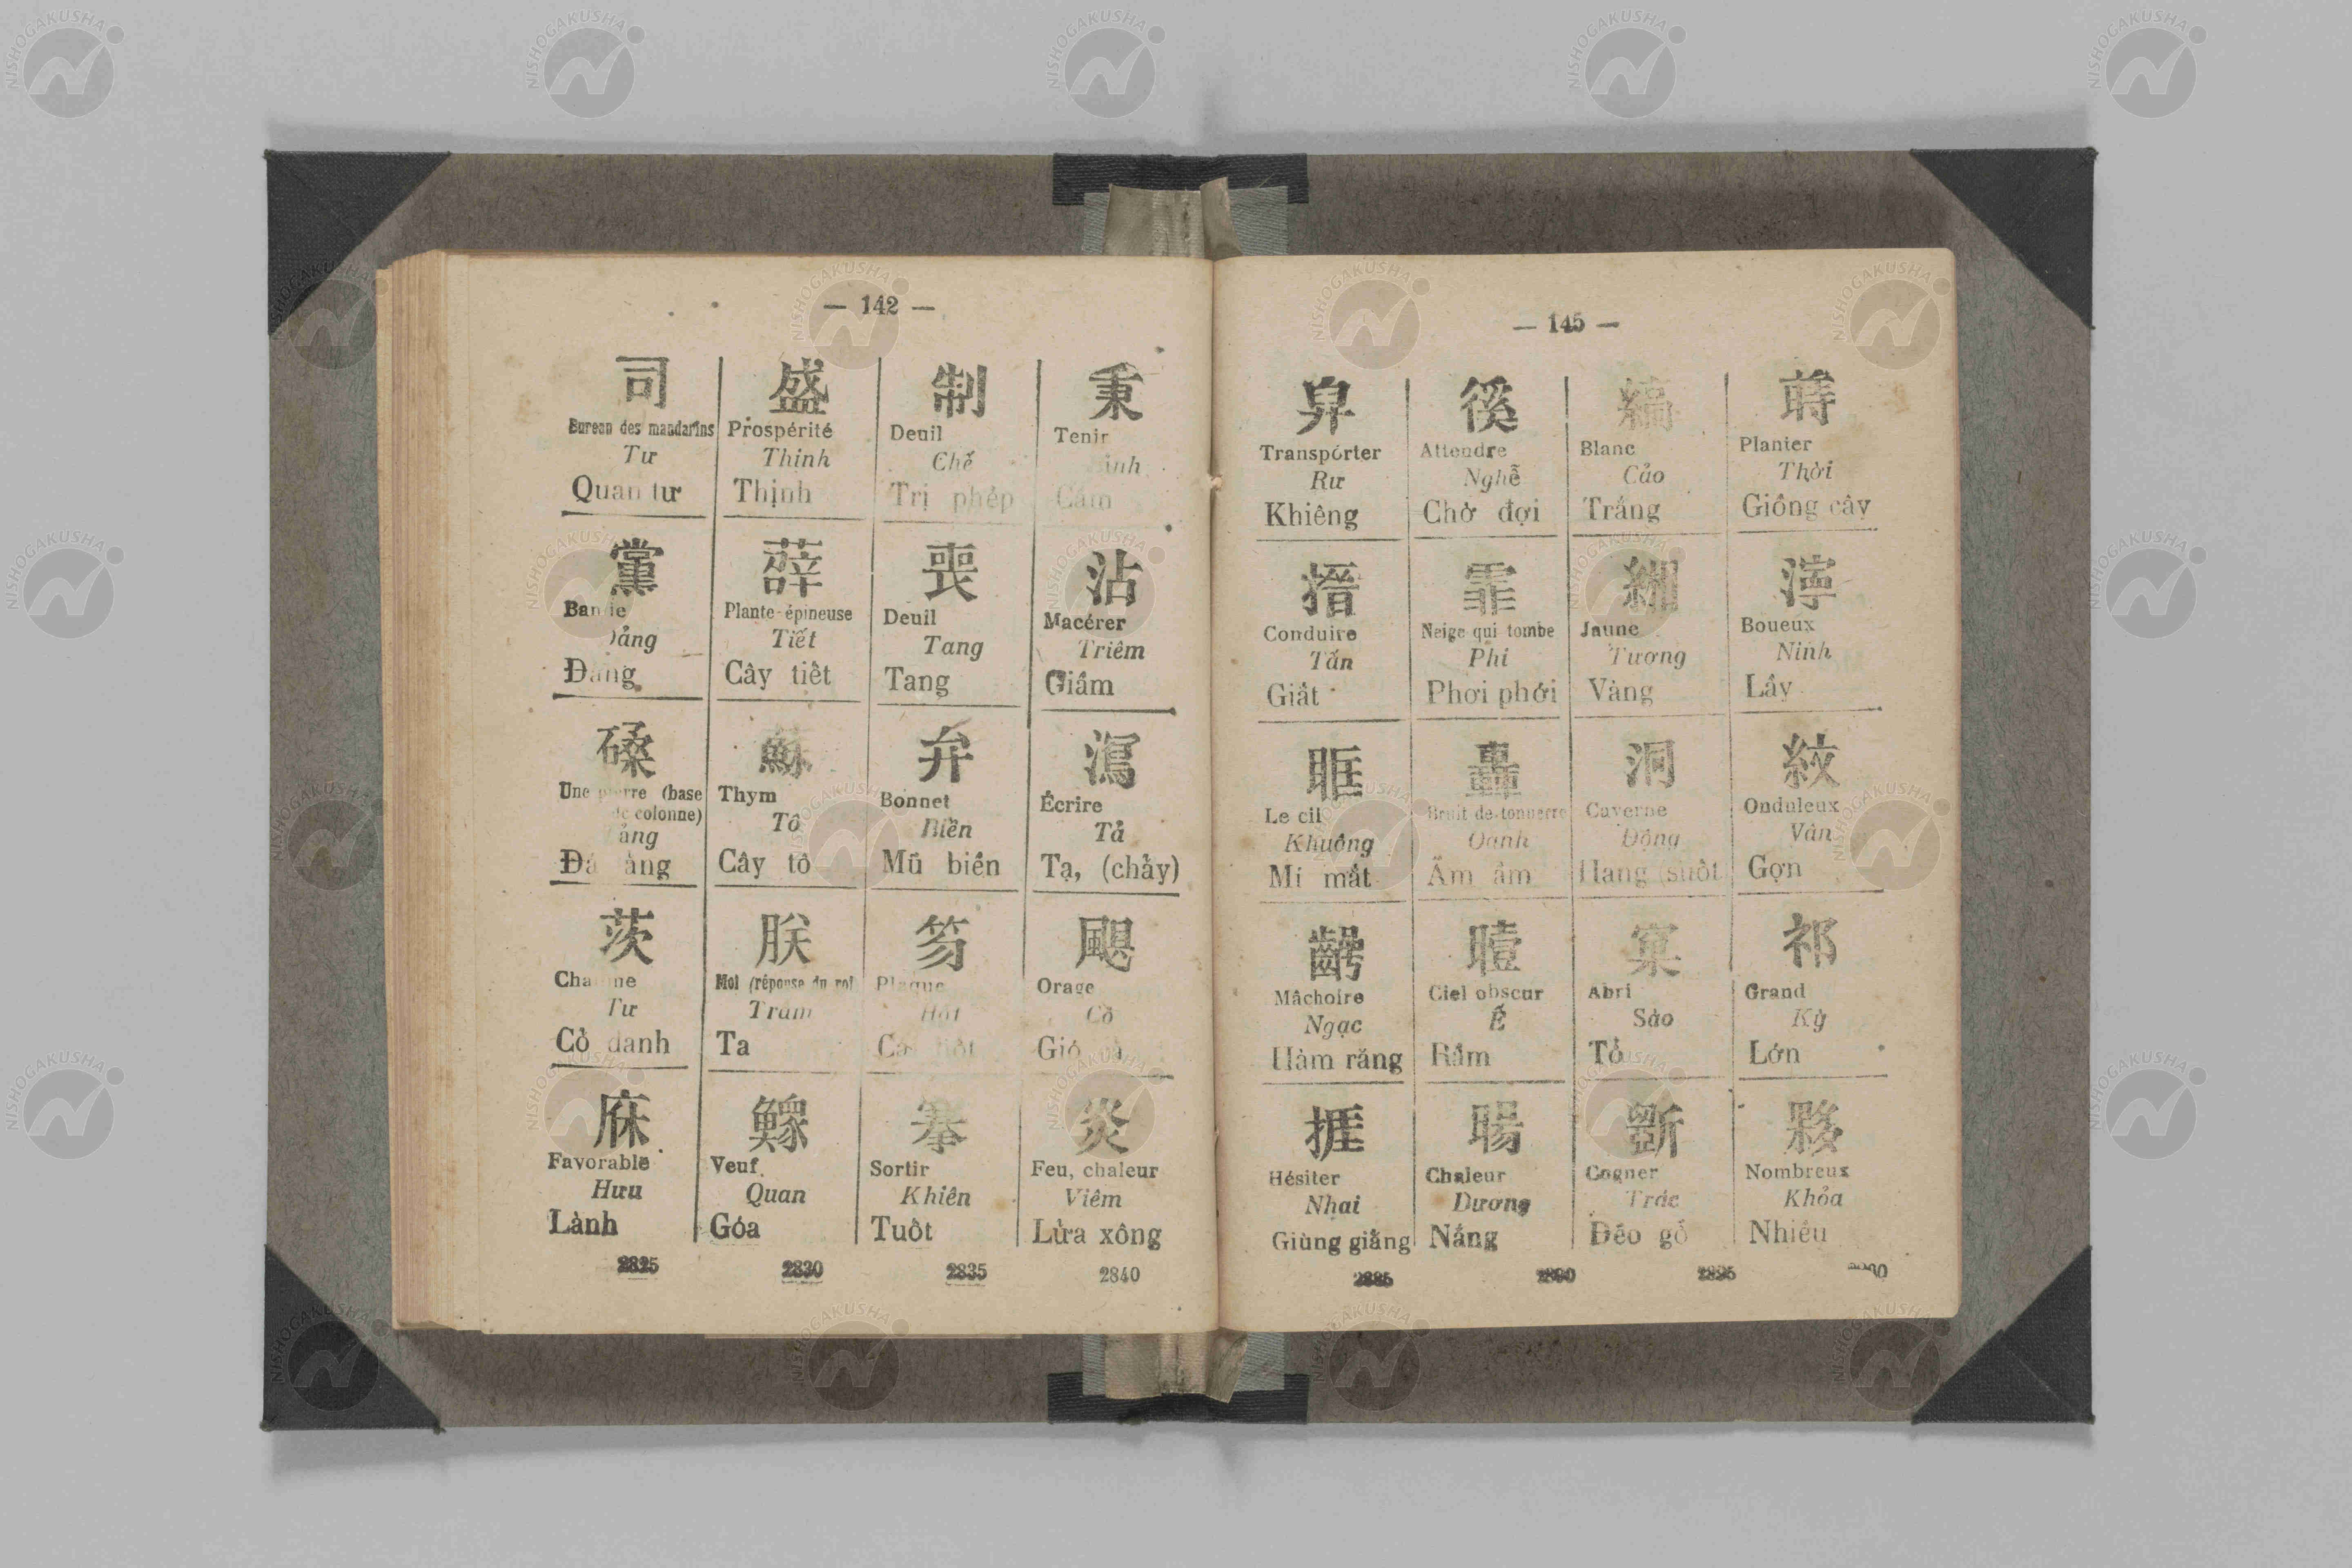 — 142 —
司 盛 制 秉
Bureau des mandarins Prospérité Deuil Tenir
Tư Thịnh Chế
Quan tư Thịnh Trị phép Cầm
黨 薛 喪 沾
Plante-épineuse Deuil Macérer
Tiết Tang Triêm
Cây tiết Tang Giấm
磉 蘇 弁 瀉
Une (base Thym Bonnet Écrire
colonne) Tô Biền Tả
Cây tô Mũ biền Tạ, (chảy)
茨 朕 笏 颶
Moi (réponse du roi Plaque Orage
Tư Trẫm Cồ
Cỏ danh Ta Gió
庥 鰥 搴 炎
Favorable Veuf Sortir Feu, chaleur
Hưu Quan Khiên Viêm
Lành Góa Tuốt Lửa xông
2825 2830 2835 2840
— 145 —
舁 徯 縞 蒔
Transporter Attendre Blanc Planter
Rư Nghễ Cảo Thời
Khiêng Chờ đợi Trắng Giồng cây
搢 霏 緗 濘
Conduire Neige qui tombe Jaune Boueux
Tấn Phi Tương Ninh
Giắt Phơi phới Vàng Lầy
眶 轟 洞 紋
Le cil Bruit de tonnerre Caverne Onduleux
Khuông Oanh Động Văn
Mi mắt Ầm ầm Hang (suốt Gợn
齶 曀 窠 祁
Mâchoire Ciel obscur Abri Grand
Ngạc Ế Sào Kỳ
Hàm răng Râm Tổ Lớn
捱 暘 斲 夥
Hésiter Chaleur Cogner Nombreux
Nhai Dương Trác Khỏa
Giùng giằng Nắng Đẽo gỗ Nhiều
2885 2890 2895